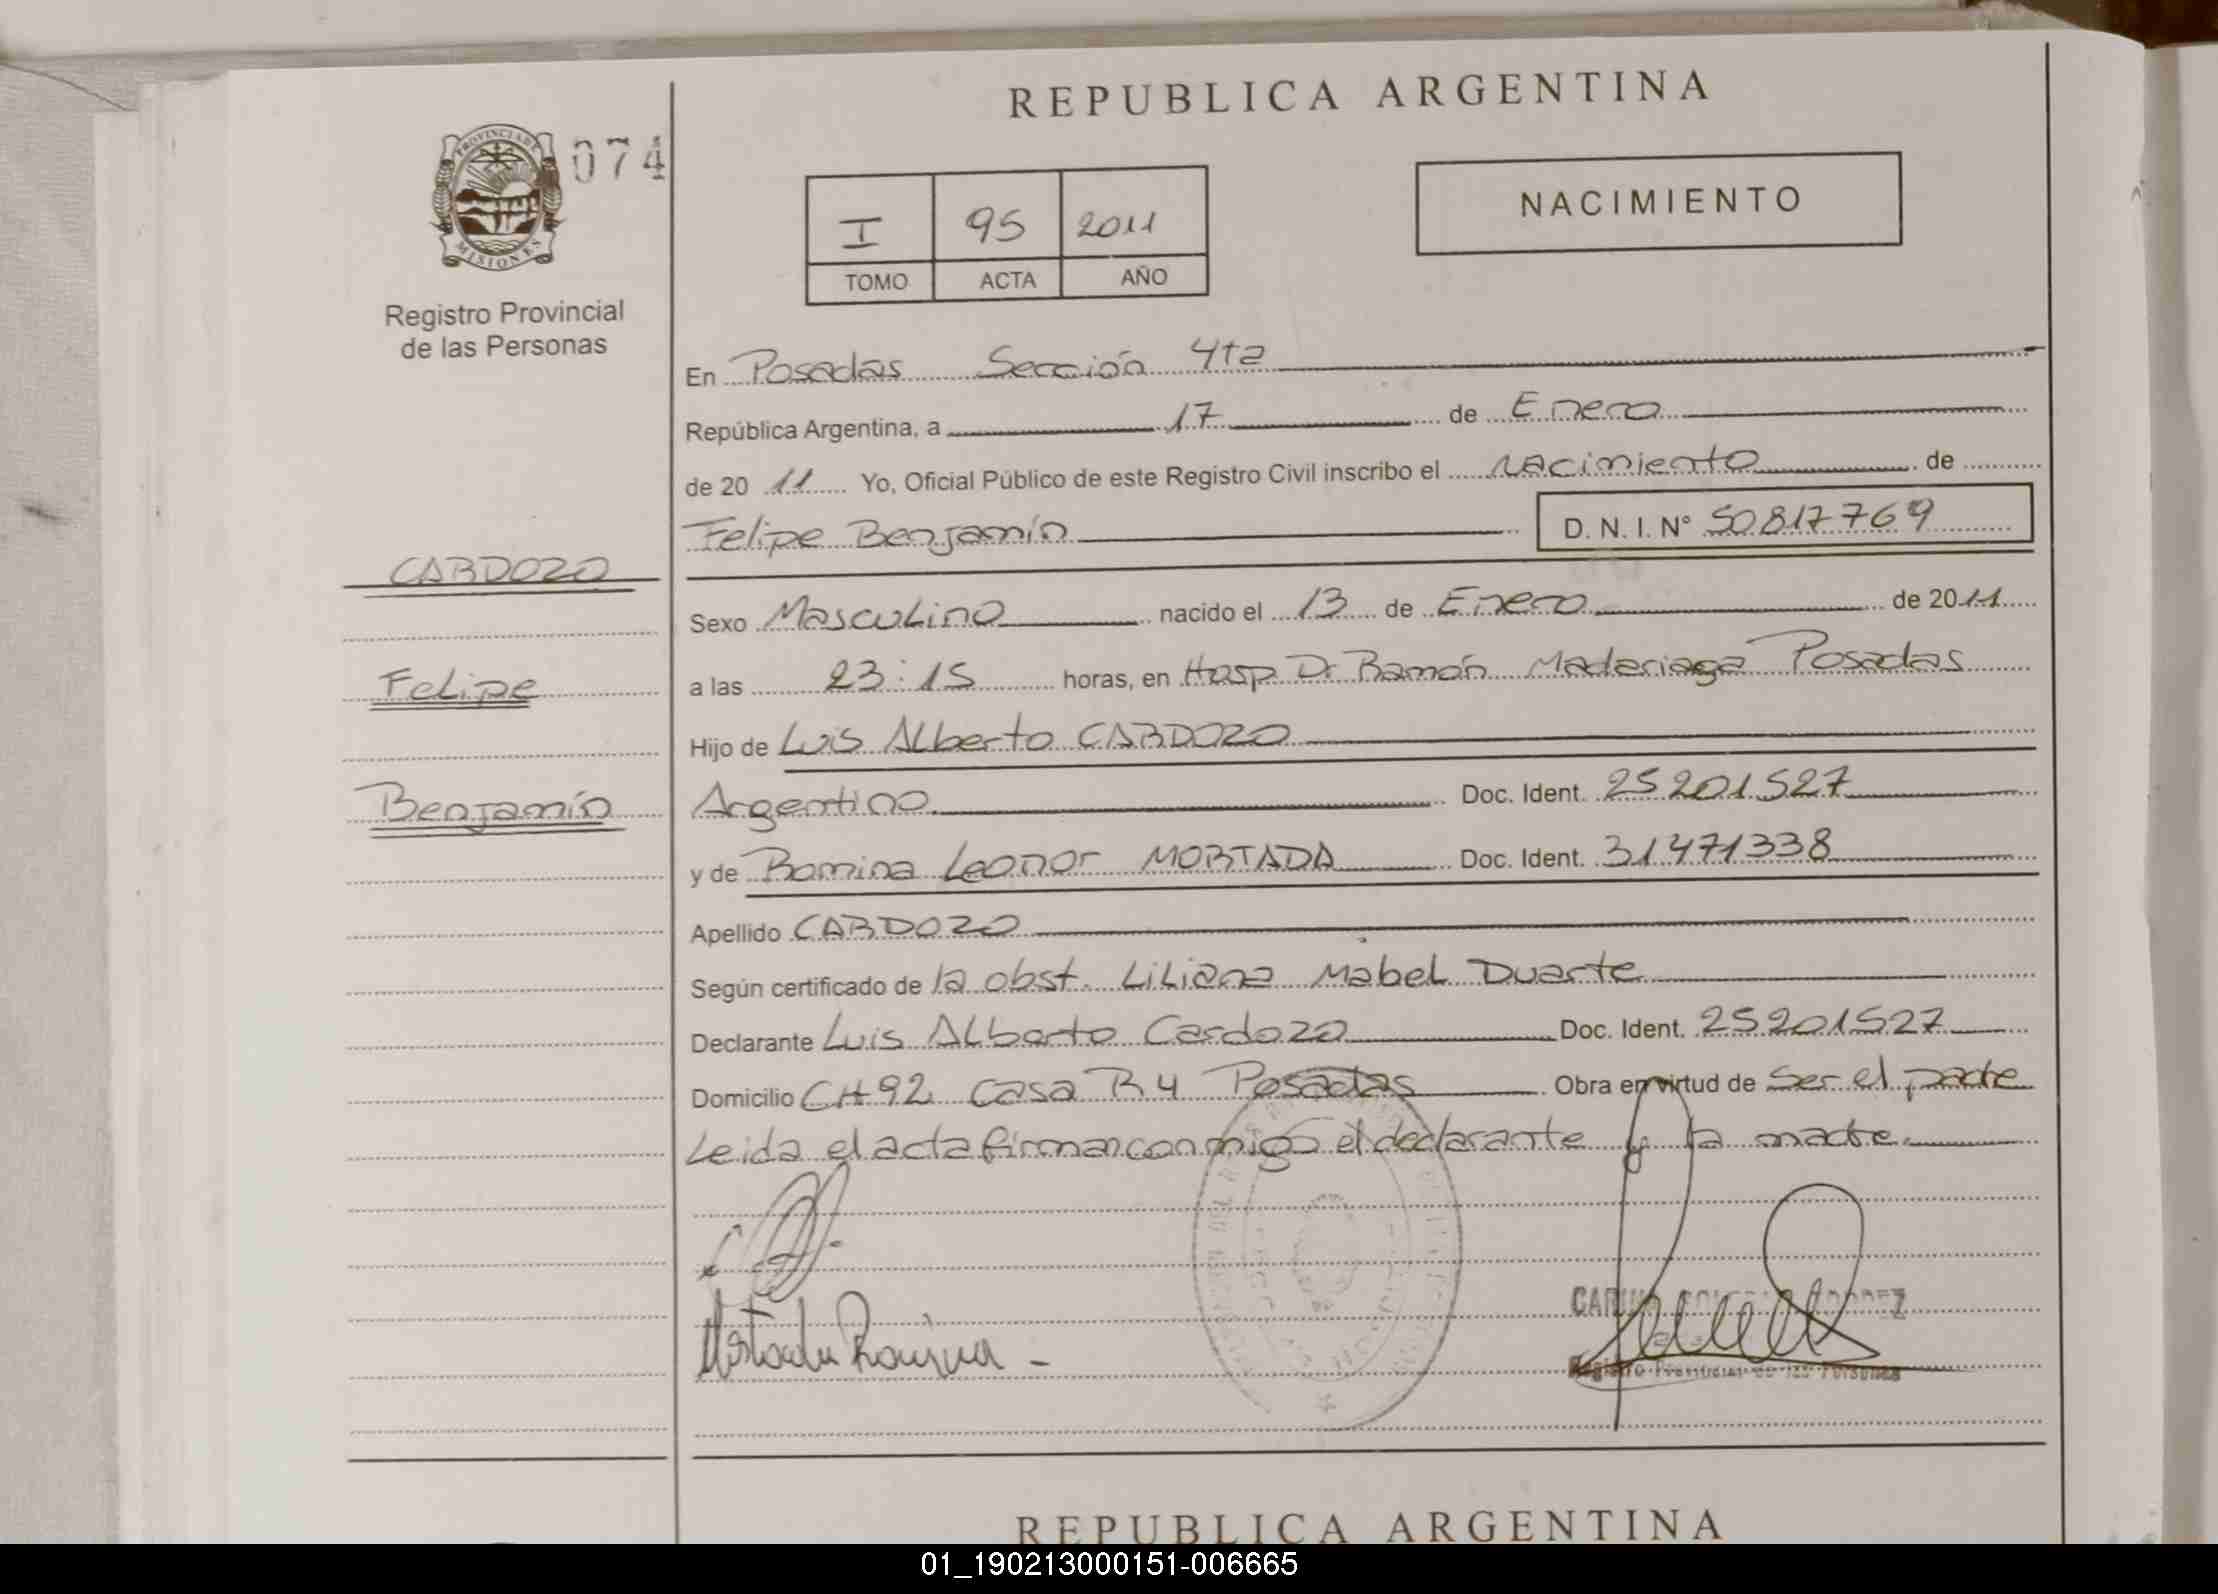 REPUBLICA ARGENTINA
PROVINCIA DE
MISIONES
074
Registro Provincial
de las Personas
I 95 2011
TOMO ACTA AÑO
NACIMIENTO
En Posadas Sección 4ta
República Argentina, a 17 de Enero
de 20 11 Yo, Oficial Público de este Registro Civil inscribo el nacimiento de
Felipe Benjamín D. N. I. N° 50817769
CARDOZO
Sexo Masculino nacido el 13 de Enero de 2011
Felipe
a las 23:15 horas, en Hosp Dr Ramón Madariaga Posadas
Hijo de Luis Alberto CARDOZO
Benjamín
Argentino Doc. Ident. 25201527
y de Romina Leonor MORTADA Doc. Ident. 31471338
Apellido CARDOZO
Según certificado de la obst. Liliana Mabel Duarte
Declarante Luis Alberto Cardozo Doc. Ident. 25201527
Domicilio CH92 Casa R4 Posadas Obra en virtud de Ser el padre
Leida el acta firman conmigo el declarante y la madre.
Mortada Romina
Registro Provincial de las Personas
REPUBLICA ARGENTINA
01_190213000151-006665